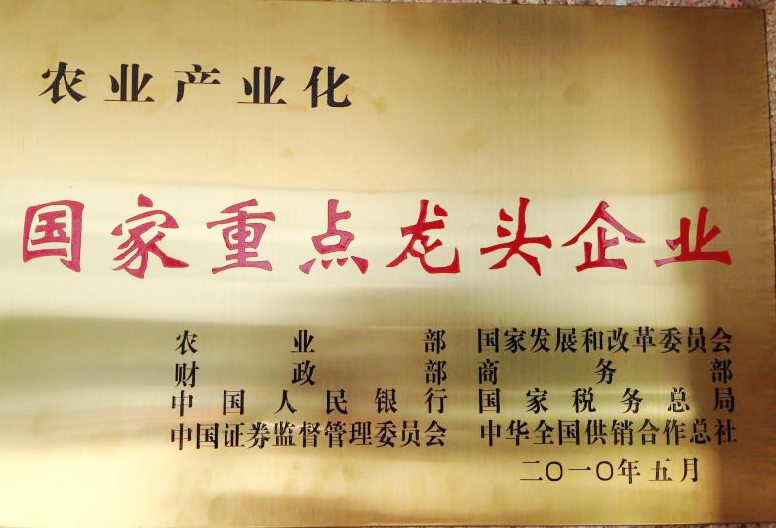 农业产业化
国家重点龙头企业
农业部 国家发展和改革委员会
财政部 商务部
中国人民银行 国家税务总局
中国证券监督管理委员会 中华全国供销合作总社
二〇一〇年五月